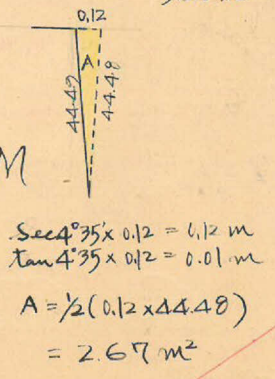 0.12
A
44.49
44.48
M
Sec4°35' x 0.12 = 0.12 m
tan 4°35 x 0.12 = 0.01 m
A = 1/2 (0.12 x 44.48)
= 2.67 m²